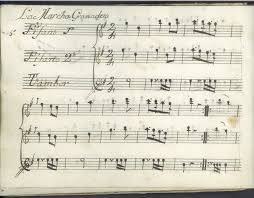 La Marcha Granadera
5ª Pifano 1º
Pifano 2º
Tambor